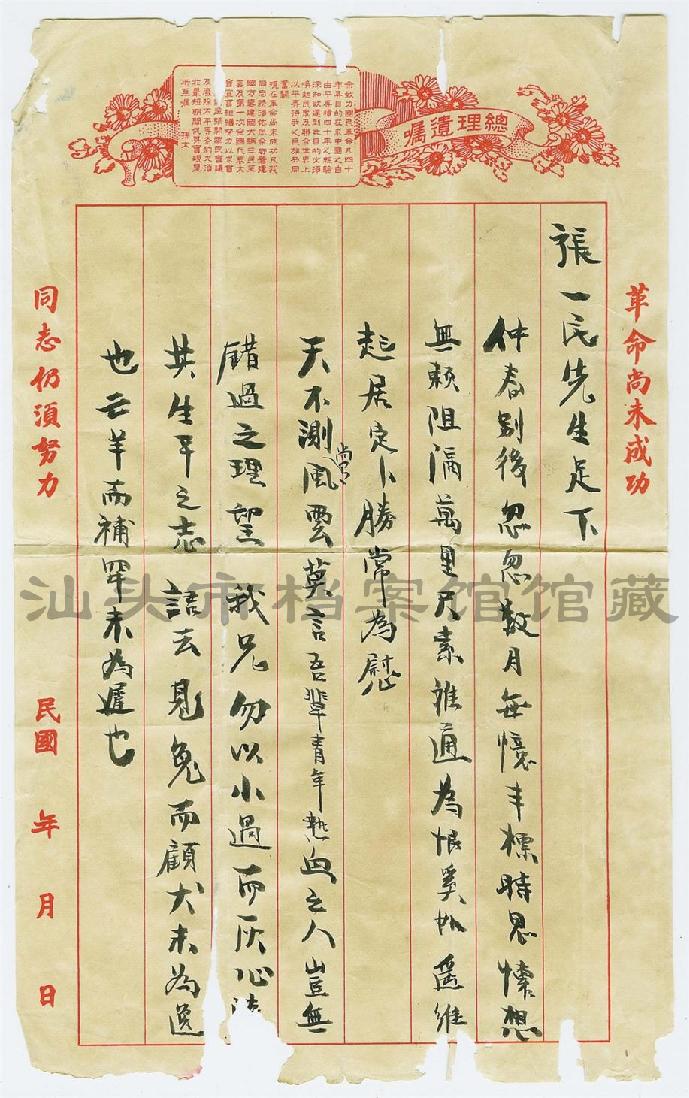 總理遺囑
革命尚未成功
張一民先生足下
仲春別後忽忽數月每憶丰標時思懷想
無賴阻隔萬里尺素誰通為恨奚如遙維
起居定卜勝常為慰
天不測風雲尚莫言吾輩青年熱血之人豈無
錯過之理望我兄勿以小過而灰心
共生平之志語云見兔而顧犬未為
也亡羊而補罕未為遲也
同志仍須努力
民國 年 月 日
汕头市档案馆馆藏